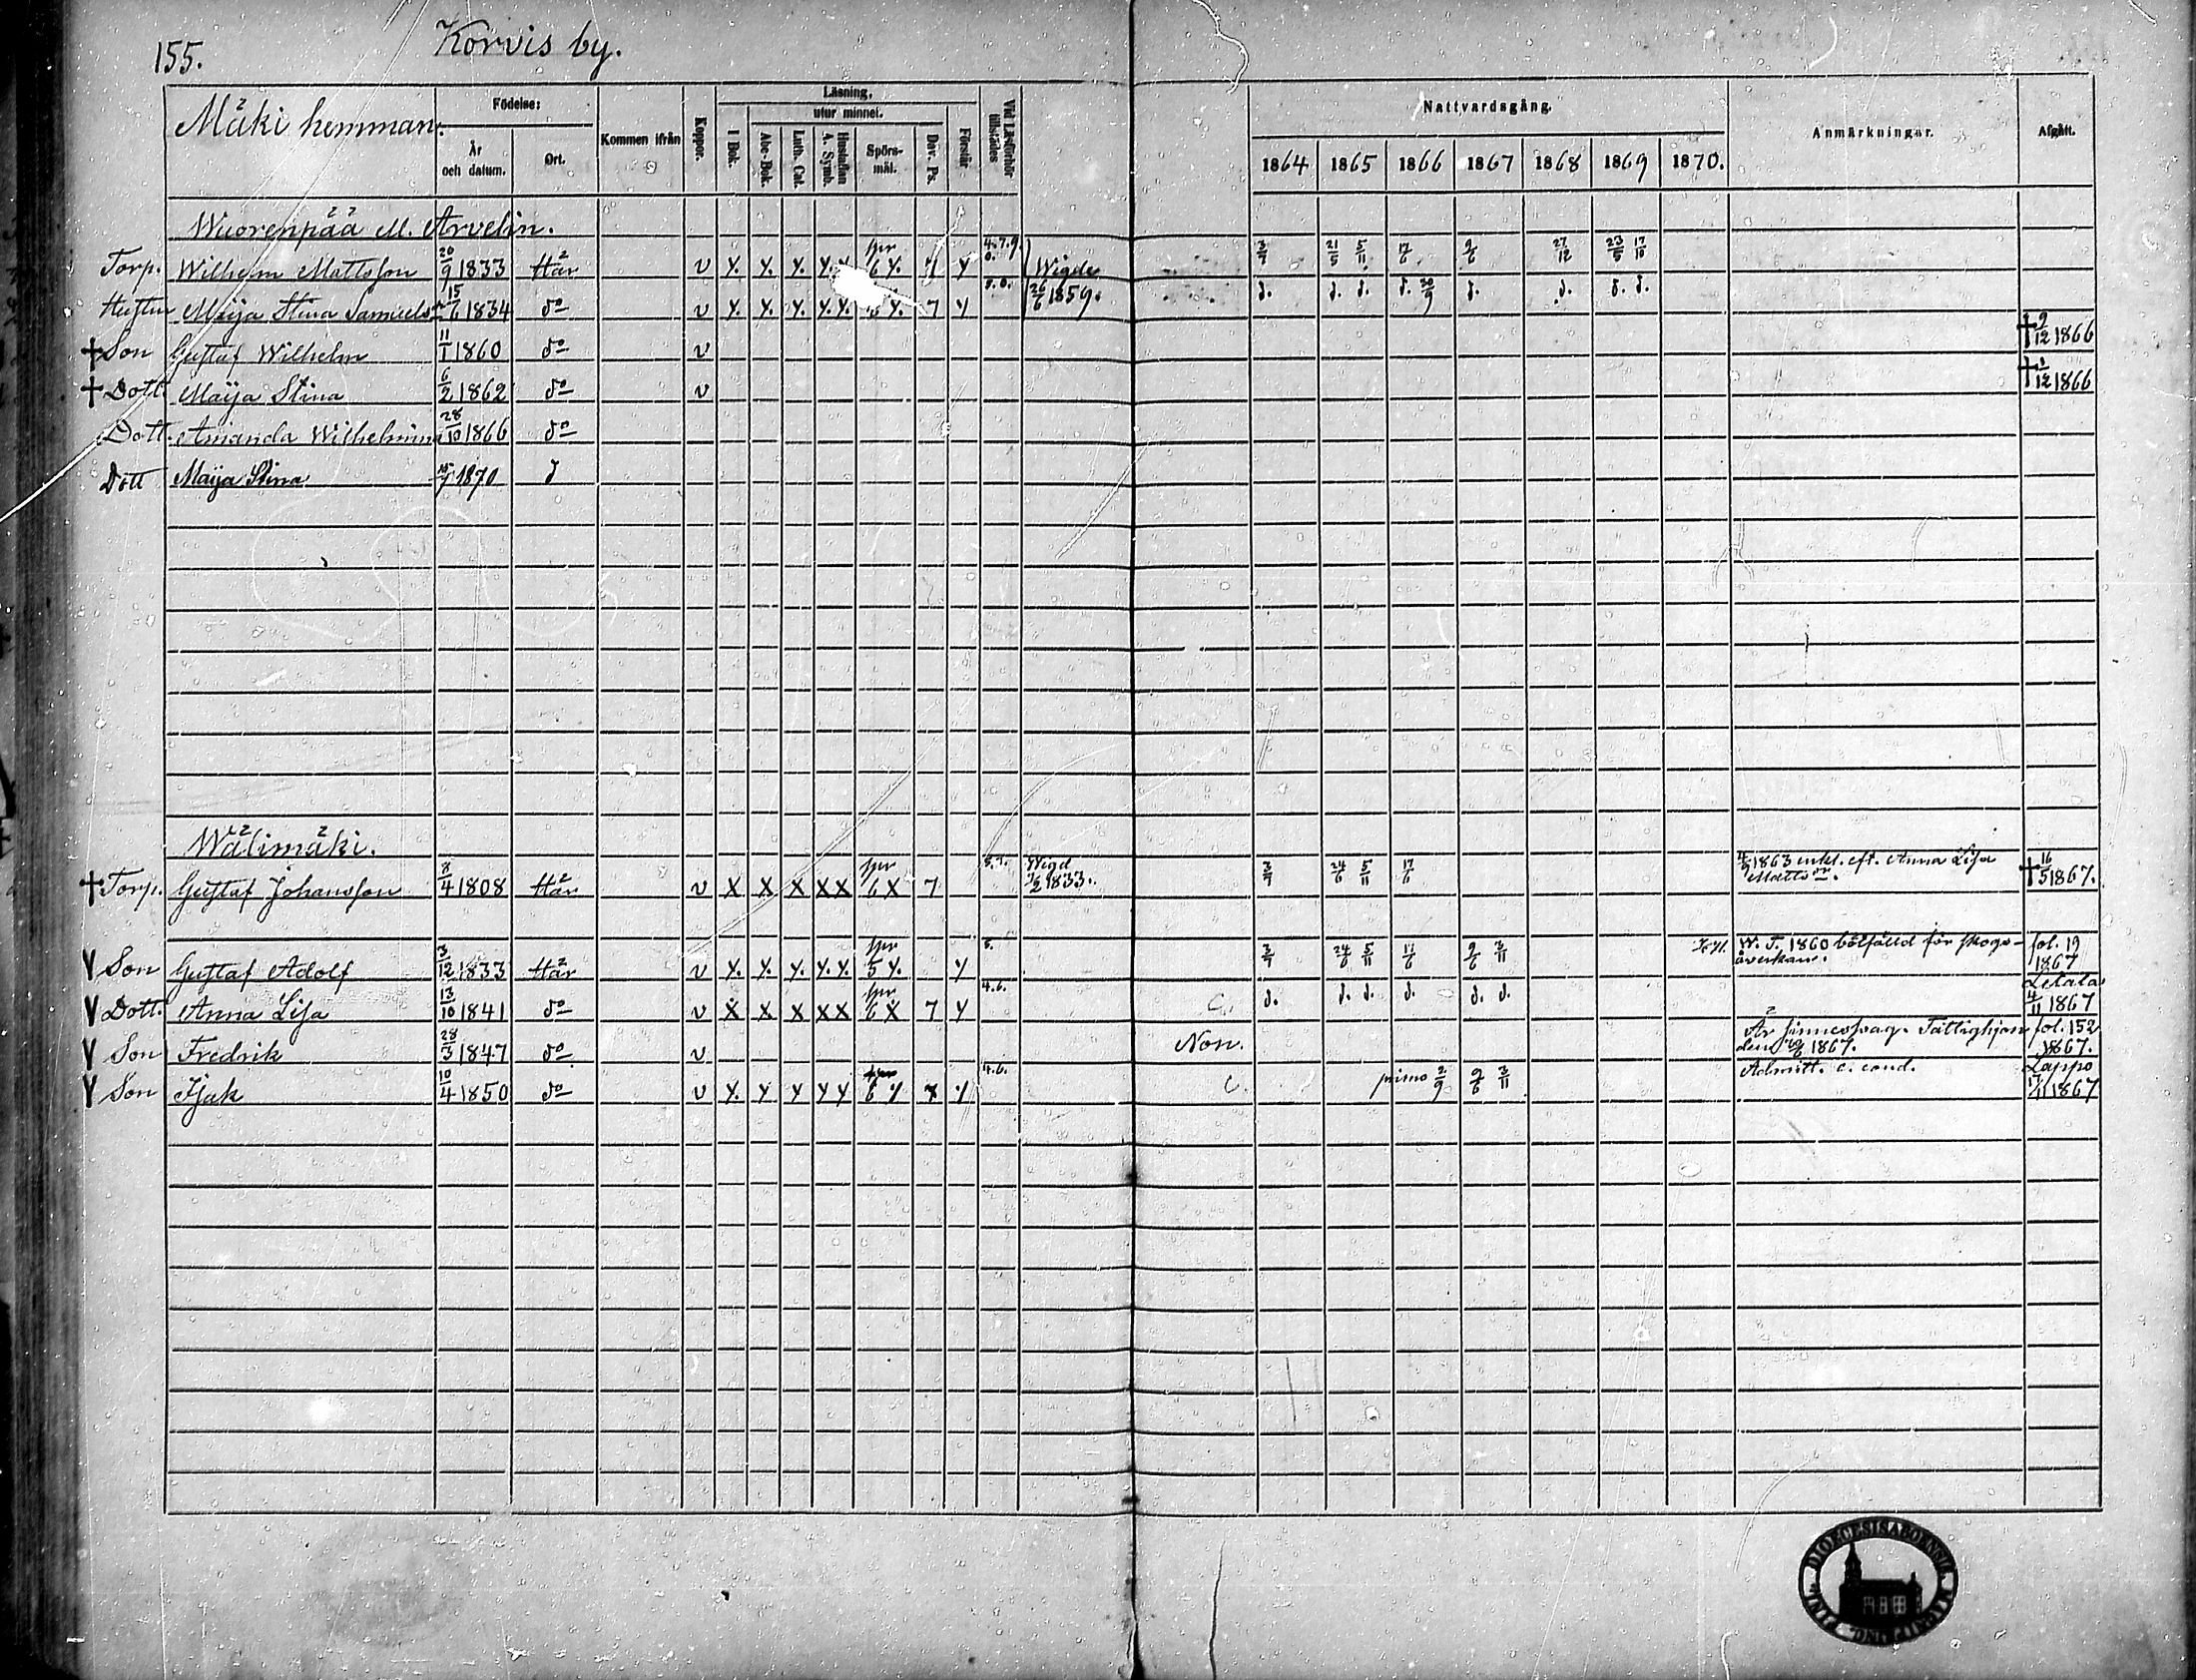 155. Korvis by.
Mäki hemman.
Födelse:
År och datum.
Ort.
Kommen ifrån
Koppor.
Läsning,
I Bok.
utur minnet.
Abc-Bok.
Luth. Cat.
Hustaflan A. Symb.
Spörs-mål.
Dav. Ps.
Förstår
Vid Läsförhör tillstädes
Nattvardsgång.
1864 1865 1866 1867 1868 1869 1870.
Anmärkningar.
Afgått.
Wuorenpää M. Arvelin.
Torp. Wilhelm Mattsson 20/9 1833 Här v Y. Y. Y. Y. Y. spr 6 Y. 7 Y 4.7.9 0. Wigde 3/7 21/5 5/11 17/6 9/6 27/12 23/5 17/10
Hustru Maija Stina Samuelsdr 15/6 1834 do v Y. Y. Y. Y. Y. Y. 7 Y 8.0. 26/6 1859. d. d. d. d. 30/9 d. d. d. d.
† Son Gustaf Wilhelm 11/1 1860 do v † 9/12 1866
† Dott. Maija Stina 6/2 1862 do v † 1/12 1866
Dott. Amanda Wilhelmina 28/10 1866 do
Dott Maija Stina 1870 d
Wälimäki.
† Torp. Gustaf Johansson 8/4 1808 Här v X X X X X spr 6 X 7 8.7. Wigd 1833. 3/7 24/6 5/11 17/6 1863 enkl. eft. Anna Lisa Mattsdr. † 16/5 1867.
V Son Gustaf Adolf 3/12 1833 Här v Y. Y. Y. Y. Y. spr 5 Y. Y 8. 3/7 24/6 5/11 17/6 9/6 3/11 W. T. 1860 bötfälld för skogs-åverkan. fol. 19 1867
V Dott. Anna Lisa 13/10 1841 do v X X X X X spr 6 X 7 Y 4.6. C. d. d. d. d. d. d. Letala 4/11 1867
V Son Fredrik 28/3 1847 do v Non. Är sinnessvag. Fattighjon den 1867. fol. 152 1867.
V Son Isak 10/4 1850 do v Y. Y Y Y Y 6 Y Y 4.6. C. primo 2/9 9/6 3/11 Admitt. c. cond. Lappo 17/11 1867
DIOECESIS ABOENSIS